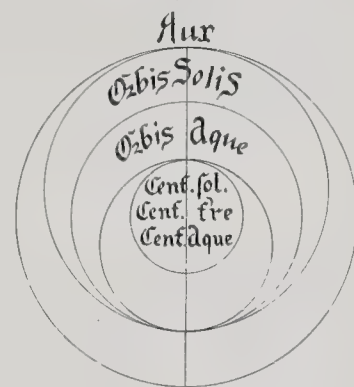 Aux
Orbis Solis
Orbis Aque
Cent. sol.
Cent. t're
Cent. Aque